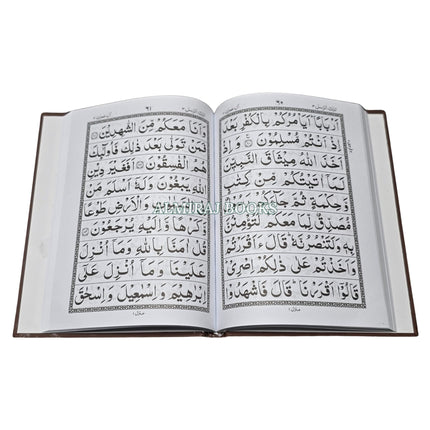 ٦٠
اَرْبَابًا اَيَاْمُرُكُمْ بِالْكُفْرِ بَعْدَ
اِذْ اَنْتُمْ مُّسْلِمُوْنَ وَ اِذْ
اَخَذَ اللّٰهُ مِيْثَاقَ النَّبِيّٖنَ
لَمَاۤ اٰتَيْتُكُمْ مِّنْ كِتٰبٍ
وَّحِكْمَةٍ ثُمَّ جَآءَكُمْ رَسُوْلٌ
مُّصَدِّقٌ لِّمَا مَعَكُمْ لَتُؤْمِنُنَّ
بِهٖ وَلَتَنْصُرُنَّهٗ قَالَ ءَاَقْرَرْتُمْ
وَاَخَذْتُمْ عَلٰى ذٰلِكُمْ اِصْرِيْ
قَالُوْۤا اَقْرَرْنَا قَالَ فَاشْهَدُوْا
منزل ١
٦١
وَاَنَا مَعَكُمْ مِّنَ الشّٰهِدِيْنَ
فَمَنْ تَوَلّٰى بَعْدَ ذٰلِكَ فَاُولٰٓئِكَ
هُمُ الْفٰسِقُوْنَ اَفَغَيْرَ دِيْنِ
اللّٰهِ يَبْغُوْنَ وَلَهٗۤ اَسْلَمَ مَنْ
فِي السَّمٰوٰتِ وَالْاَرْضِ طَوْعًا
وَّكَرْهًا وَّاِلَيْهِ يُرْجَعُوْنَ
قُلْ اٰمَنَّا بِاللّٰهِ وَمَاۤ اُنْزِلَ
عَلَيْنَا وَمَاۤ اُنْزِلَ عَلٰۤى
اِبْرٰهِيْمَ وَاِسْمٰعِيْلَ وَاِسْحٰقَ
منزل ١
ALMIRAJ BOOKS